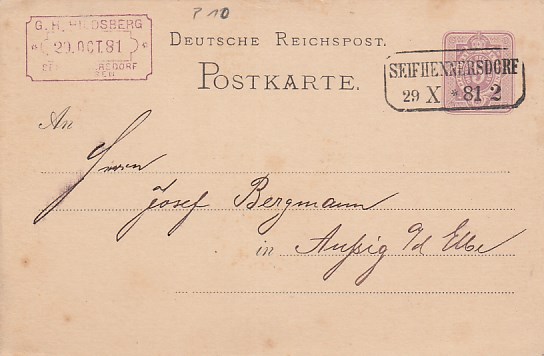 P 10
G. H. HILDSBERG
29. OCT. 81
DEUTSCHE REICHSPOST.
POSTKARTE.
SEIFHENNERSDORF
29 X * 81 2
An
Herrn
Josef Bergmann
in Außig a/d Elbe